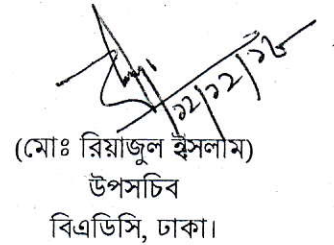 ১২/১২/১৮
(মোঃ রিয়াজুল ইসলাম)
উপসচিব
বিএডিসি, ঢাকা।